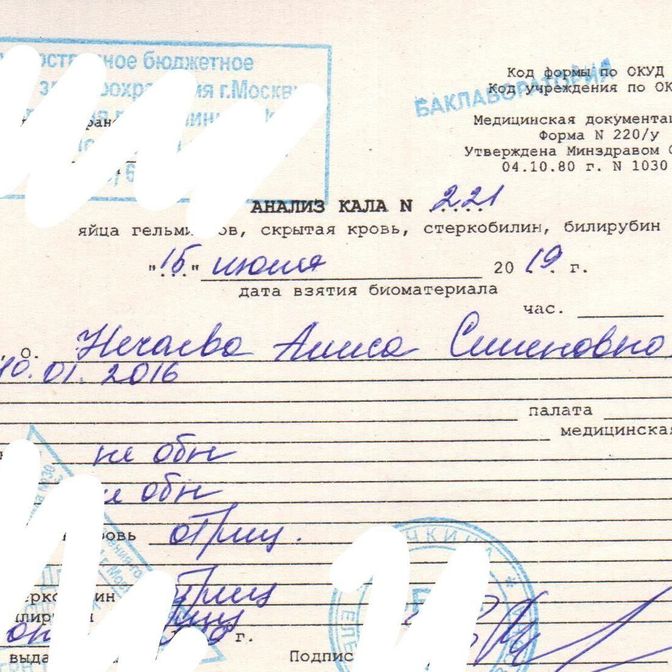 бюджетное
г.Москв
БАКЛАБОРАТОРИЯ
Код формы по ОКУД
Код учреждения по ОК
Медицинская документац
Форма N 220/у
Утверждена Минздравом С
04.10.80 г. N 1030
АНАЛИЗ КАЛА N 221
яйца скрытая кровь, стеркобилин, билирубин
"15" июня 2019 г.
дата взятия биоматериала
час.
о. Нечаева Алиса Семеновно
10.01.2016
палата
медицинская
не обн
не обн
кровь отриц.
отриц
отриц
г.
выда Подпис